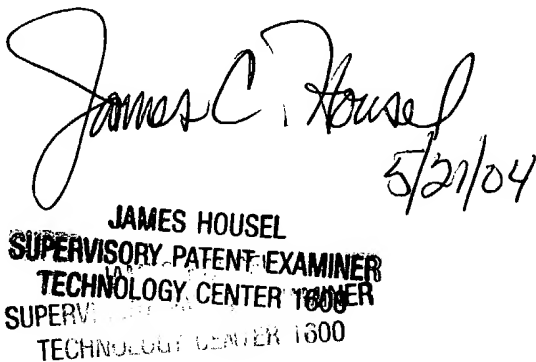 James C. Housel
5/27/04
JAMES HOUSEL
SUPERVISORY PATENT EXAMINER
TECHNOLOGY CENTER 1600
TECHNOLOGY CENTER 1600